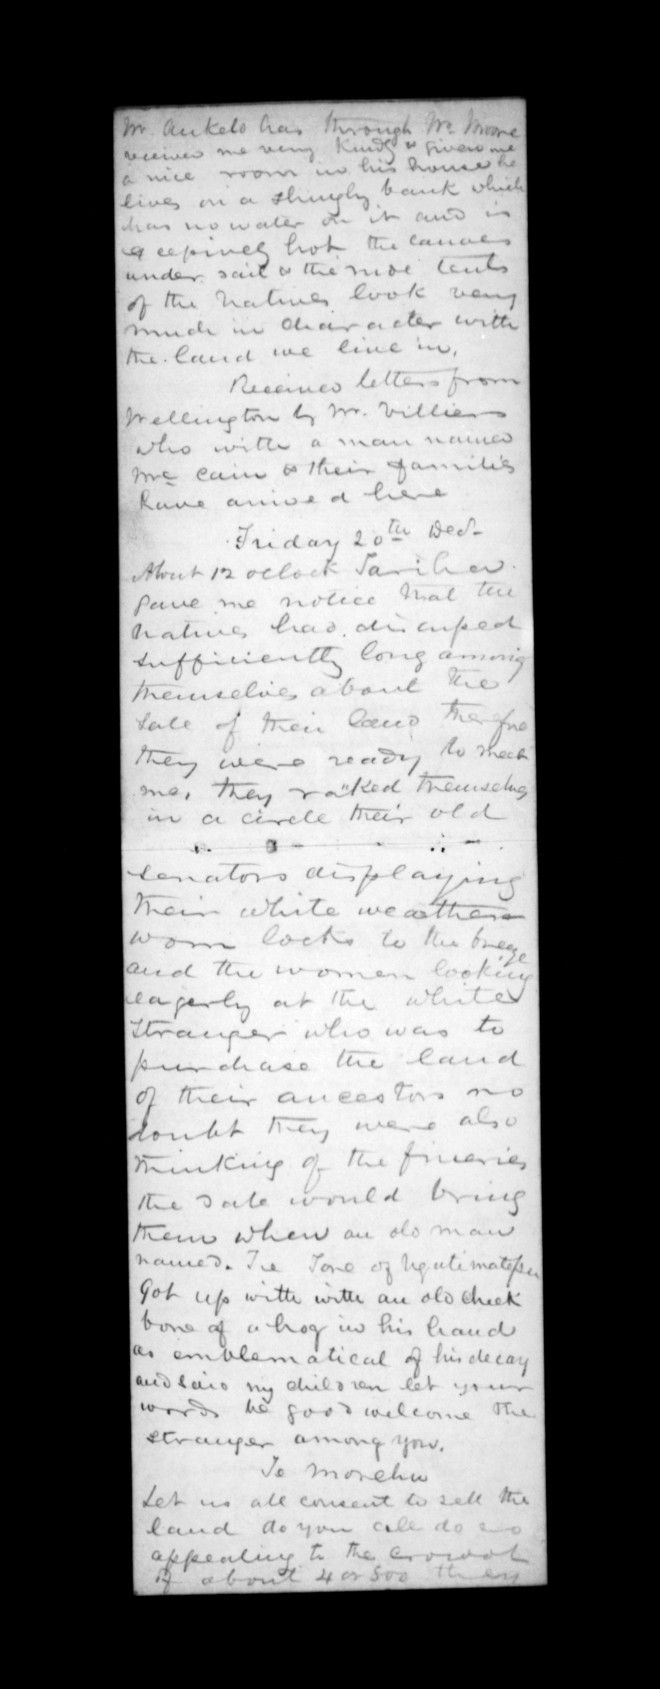 Mr. Ankelo has through Mr Moore
received me very kindly & given me
a nice room in his house he
lives on a shingly bank which
has no water on it and is
exceepively hot the canoes
under sail & the rude tents
of the Natives look very
much in character with
the land we live in.
Received letters from
Wellington by Mr. Villiers
who with a man named
Mc cain & their families
have arrived here
Friday 20th Decr
About 12 oclock
gave me notice that the
Natives had discuped
sufficiently long among
themselves about the
sale of their land therefore
they were ready to meet
me, they ranked themselves
in a circle their old
senators displaying
their white weather
worn locks to the breeze
and the women looking
eagerly at the white
stranger who was to
purchase the land
of their ancestors no
doubt they were also
thinking of the fineries
the sale would bring
them when an old man
named. Tore of
Got up with with an old cheek
bone of a hog in his hand
as emblematical of his decay
and said my children let your
words be good welcome the
stranger among you.
Te Morehu
Let us all consent to sell the
land do you all do so
appealing to the crowd
of about 4 or 500 they